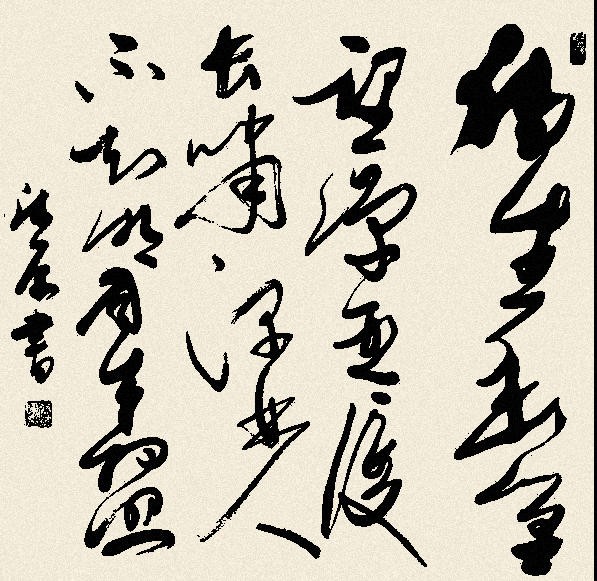 獨坐幽篁
裏彈琴復
長嘯深林人
不知明月來相照
書